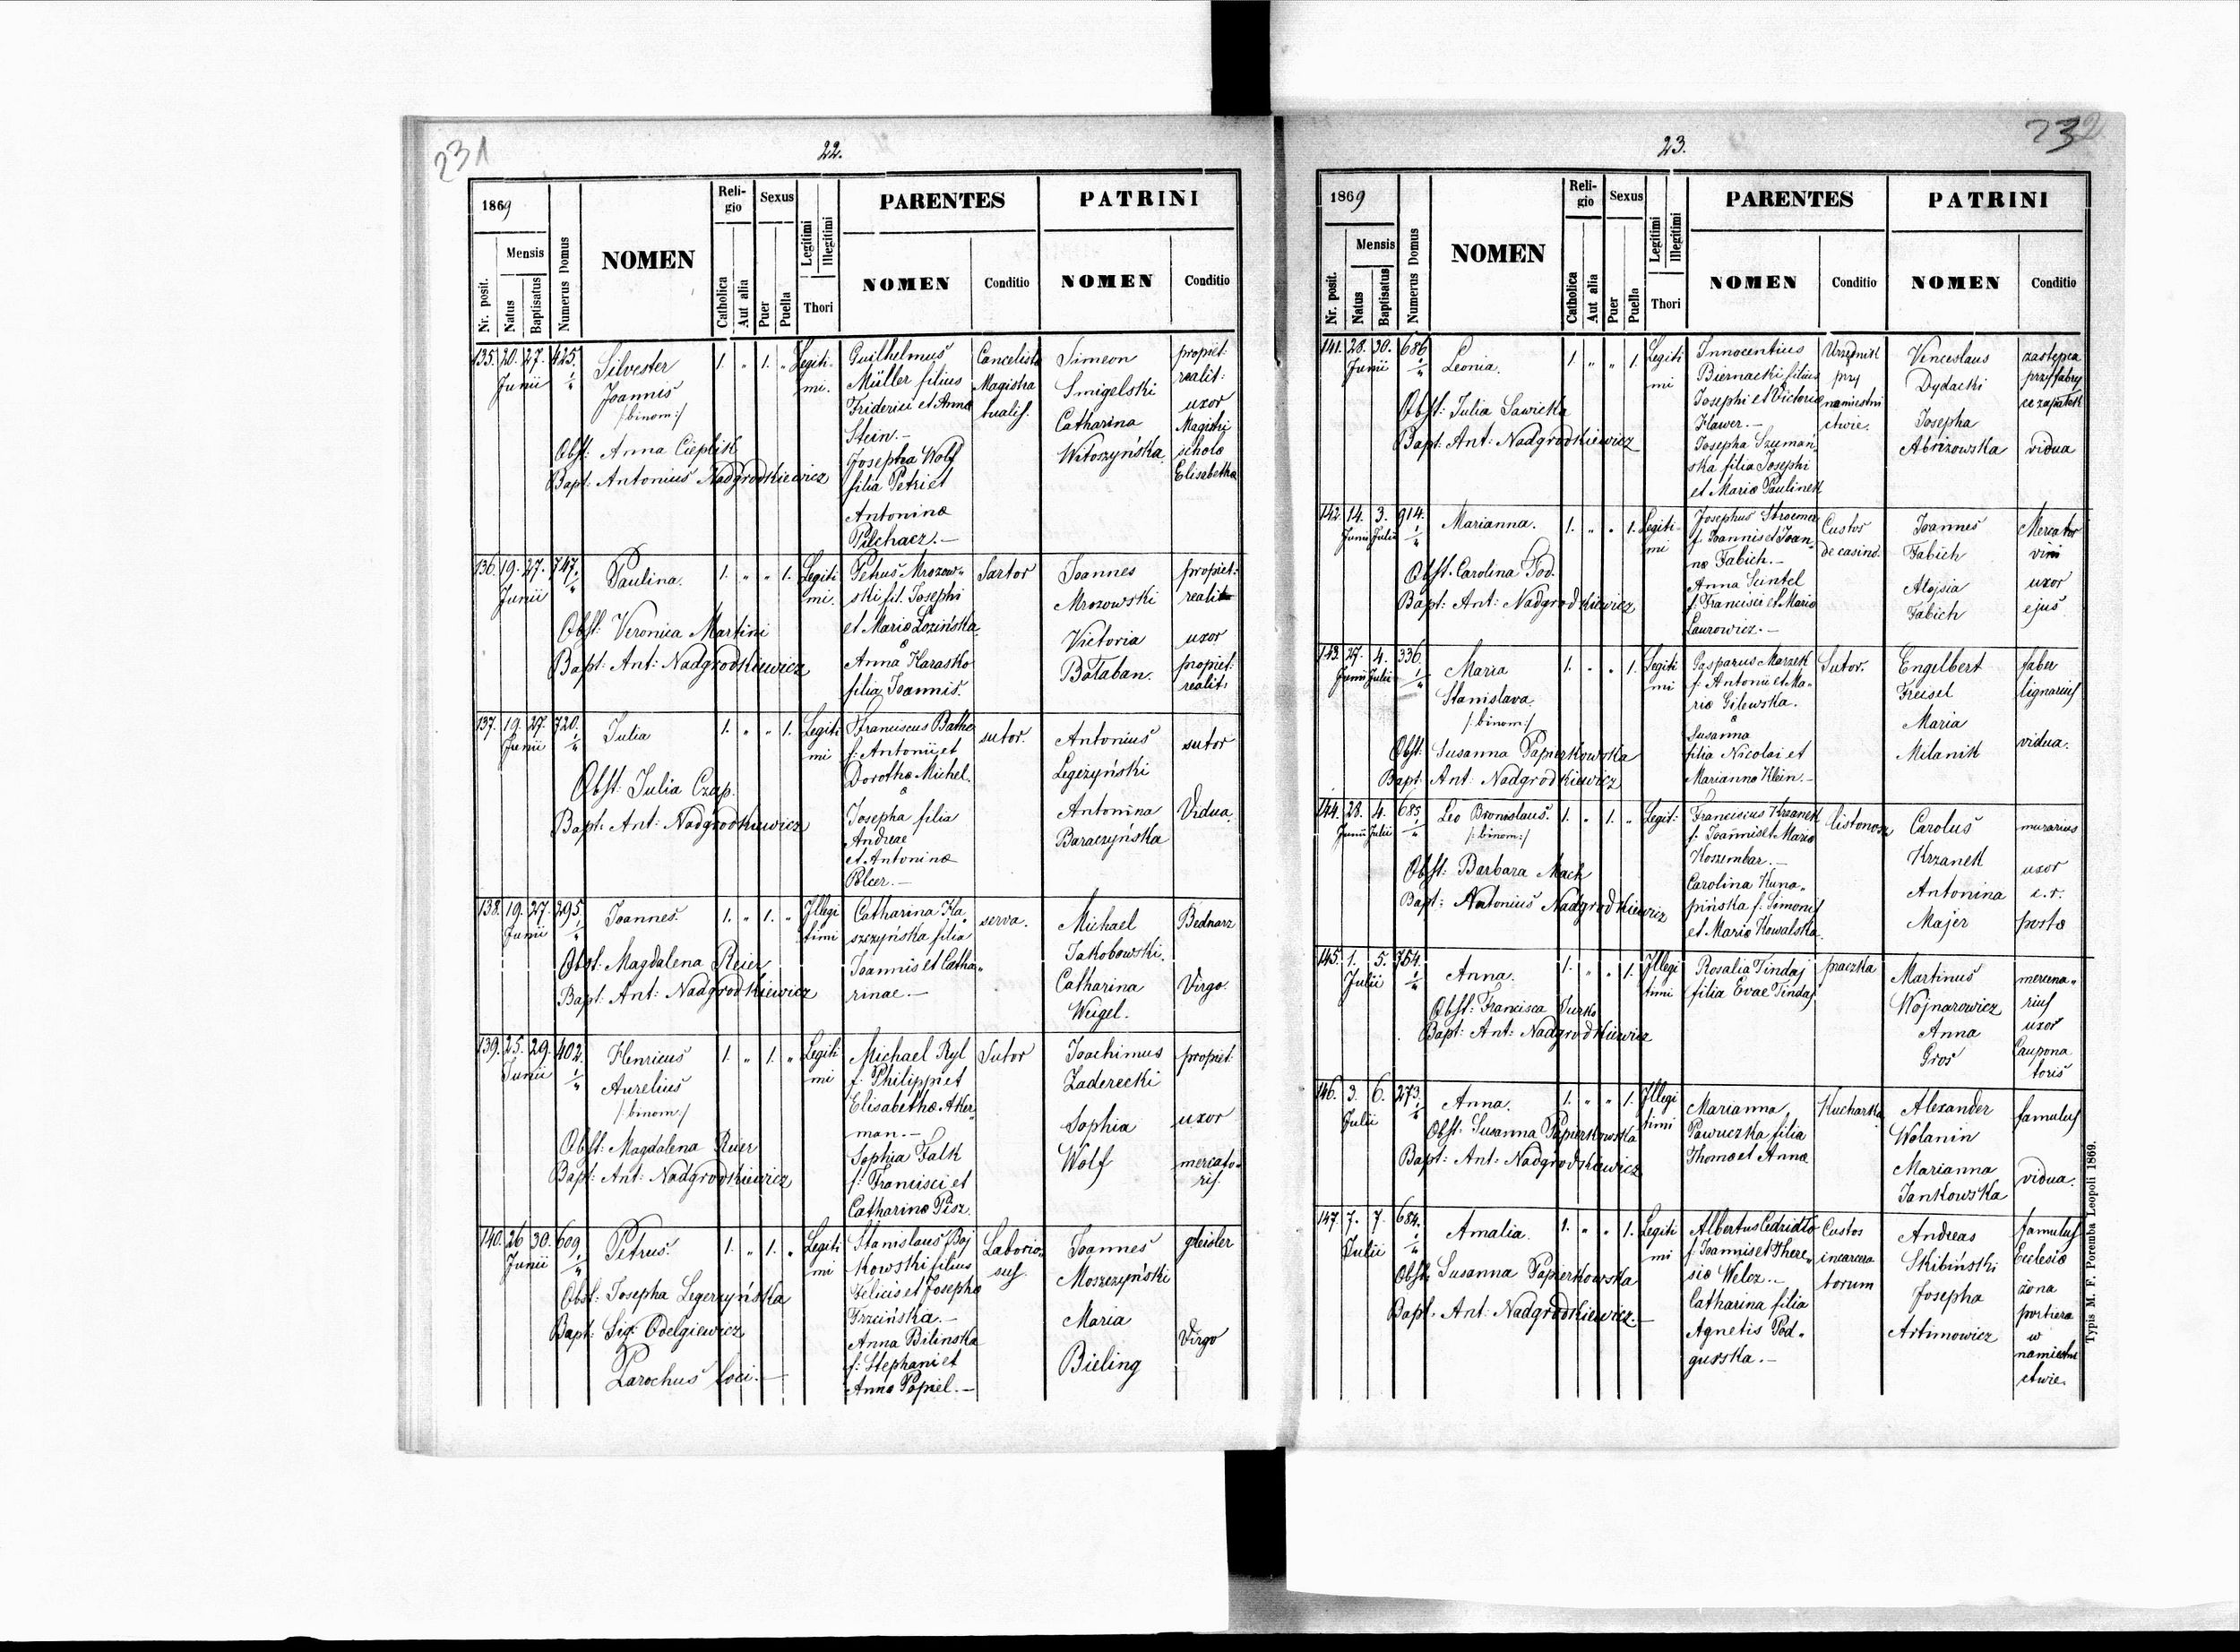 231
22.
1869
Mensis
Nr. posit.
Natus
Baptisatus
Numerus Domus
NOMEN
Religio
Catholica
Aut alia
Sexus
Puer
Puella
Legitimi
Illegitimi
Thori
PARENTES
NOMEN
Conditio
PATRINI
NOMEN
Conditio
135. 20. 27. 425.
Junii
Silvester
Joannes
/:binom:/
Obst: Anna Cieplik
Bapt: Antonius Nadgrodkiewicz
1. „ 1. „
Legiti
mi.
Guilhelmus
Müller filius
Friderici et Anna
Stein.—
Josepha Wolf
filia Petri et
Antoninæ
Pilchacz.—
Cancelista
Magistra
tualis.
Simeon
Smigelski
Catharina
Witoszyńska
propiet:
realit:
uxor
Magistri
scholæ
Elisabetha
136. 19. 27. 747.
Junii
Paulina.
Obst: Veronica Martini
Bapt: Ant: Nadgrodkiewicz
1. „ „ 1.
Legiti
mi.
Petrus Mrozow„
ski fil. Josephi
et Mariæ Łozińska
&
Anna Harasko
filia Joannis.
Sartor
Joannes
Mrozowski
Victoria
Bałaban.
propiet:
realit
uxor
propiet:
realit:
137. 19. 27. 720.
Junii
Julia
Obst: Julia Czap.
Bapt: Ant: Nadgrodkiewicz
1. „ „ 1.
Legiti
mi
Franciscus Bathe
f: Antonii et
Dorothæ Michel.
&
Josepha filia
Andreae
et Antoninæ
Polcer.—
sutor.
Antonius
Legezyński
Antonina
Baraczyńska
sutor
Vidua.
138. 19. 27. 295.
Junii
Joannes.
Obst: Magdalena Reier
Bapt: Ant: Nadgrodkiewicz
1. „ 1. „
Illegi
timi
Catharina Ka„
szczyńska filia
Joannis et Catha„
rinae.—
serva.
Michael
Jakobowski.
Catharina
Weigel.
Bednarz
Virgo.
139. 25. 29. 402.
Junii
Henricus
Aurelius
/:binom:/
Obst: Magdalena Reier
Bapt: Ant: Nadgrodkiewicz
1. „ 1. „
Legiti
mi
Michael Ryl
f. Philippi et
Elisabethæ Aker„
man.—
Sophia Falk
f: Francisci et
Catharinæ Pisz.
Sutor
Joachimus
Zaderecki
Sophia
Wolf
propiet:
uxor
mercato„
ris.
140. 26 30. 609.
Junii
Petrus.
Obst: Josepha Legerzyńska
Bapt: Sig: Odelgiewicz
Parochus loci.—
1. „ 1. „
Legiti
mi
Stanislaus Boj
kowski filius
Felicis et Josepha
Trzcińska.—
Anna Bilinska
f: Stephani et
Anna Popiel.—
Laborio„
sus.
Joannes
Moszczyński
Maria
Bieling
gleisler
Virgo
232
23.
1869
Mensis
Nr. posit.
Natus
Baptisatus
Numerus Domus
NOMEN
Religio
Catholica
Aut alia
Sexus
Puer
Puella
Legitimi
Illegitimi
Thori
PARENTES
NOMEN
Conditio
PATRINI
NOMEN
Conditio
141. 28. 30. 686
Junii
Leonia.
Obst: Julia Sawicka
Bapt: Ant: Nadgrodkiewicz
1. „ „ 1.
Legiti
mi
Innocentius
Biernacki filius
Josephi et Victoria
Hawer.—
Josepha Szyman„
ska filia Josephi
et Mariæ Paulinek
Urzędnik
przy
namiestni
ctwie.
Venceslaus
Dydacki
Josepha
Abrizowska
zastępca
przy fabry
ce zapałek
vidua
142. 14. 3. 914.
Junii Julii
Marianna.
Obst: Carolina Pod.
Bapt: Ant: Nadgrodkiewicz
1. „ „ 1.
Legiti
mi
Josephus Stroemer
f. Joannis et Joan„
næ Fabich.—
Anna Scintel
f: Francisci et Mariæ
Laurowicz.—
Custos
de casino.
Joannes
Fabich
Alojsia
Fabich
Mercator
vini
uxor
ejus
143. 27. 4. 336.
Junii Julii
Maria
Stanislava
/:binom:/
Obst: Susanna Papierkowska
Bapt: Ant: Nadgrodkiewicz
1. „ „ 1.
Legiti
mi
Gasparus Marzek
f. Antonii et Ma„
riæ Gilewska.
&
Susanna
filia Nicolai et
Mariannæ Klein.—
Sutor.
Engelbert
Freisel
Maria
Milanik
faber
lignarius
vidua.
144. 28. 4. 685.
Junii Julii
Leo Bronislaus.
/:binom:/
Obst: Barbara Mach
Bapt: Antonius Nadgrodkiewicz
1. „ 1. „
Legit:
Franciscus Krzanek
f. Joannis et Mariæ
Koszembar.—
Carolina Kuna„
pińska f. Simonis
et Mariæ Kowalska.
listonosz
Carolus
Krzanek
Antonina
Majer
murarius
uxor
c. r.
postæ
145. 1. 5. 754.
Julii
Anna.
Obst: Francisca Turko
Bapt: Ant: Nadgrodkiewicz
1. „ „ 1.
Illegi
timi
Rosalia Tindaj
filia Evae Tindaj
praczka
Martinus
Wojnarowicz
Anna
Gros
mercena„
rius
uxor
Caupona
toris
146. 3. 6. 273.
Julii
Anna.
Obst: Susanna Papierkowska
Bapt: Ant: Nadgrodkiewicz
1. „ „ 1.
Illegi
timi
Marianna
Pawuczka filia
Thomæ et Annæ
Kucharka
Alexander
Wolanin
Marianna
Jankowska
famulus
vidua.
147. 7. 7. 684.
Julii
Amalia.
Obst: Susanna Papierkowska
Bapt: Ant: Nadgrodkiewicz.—
1. „ „ 1.
Legiti
mi
Albertus Cedridło
f. Joannis et There„
siæ Welcz.—
Catharina filia
Agnetis Pod„
gurska.—
Custos
incarcera
torum
Andreas
Skibiński
Josepha
Artimowicz
famulus
Ecclesiæ
żona
portiera
w
namiestni
ctwie.
Typis M. F. Poremba Leopoli 1869.